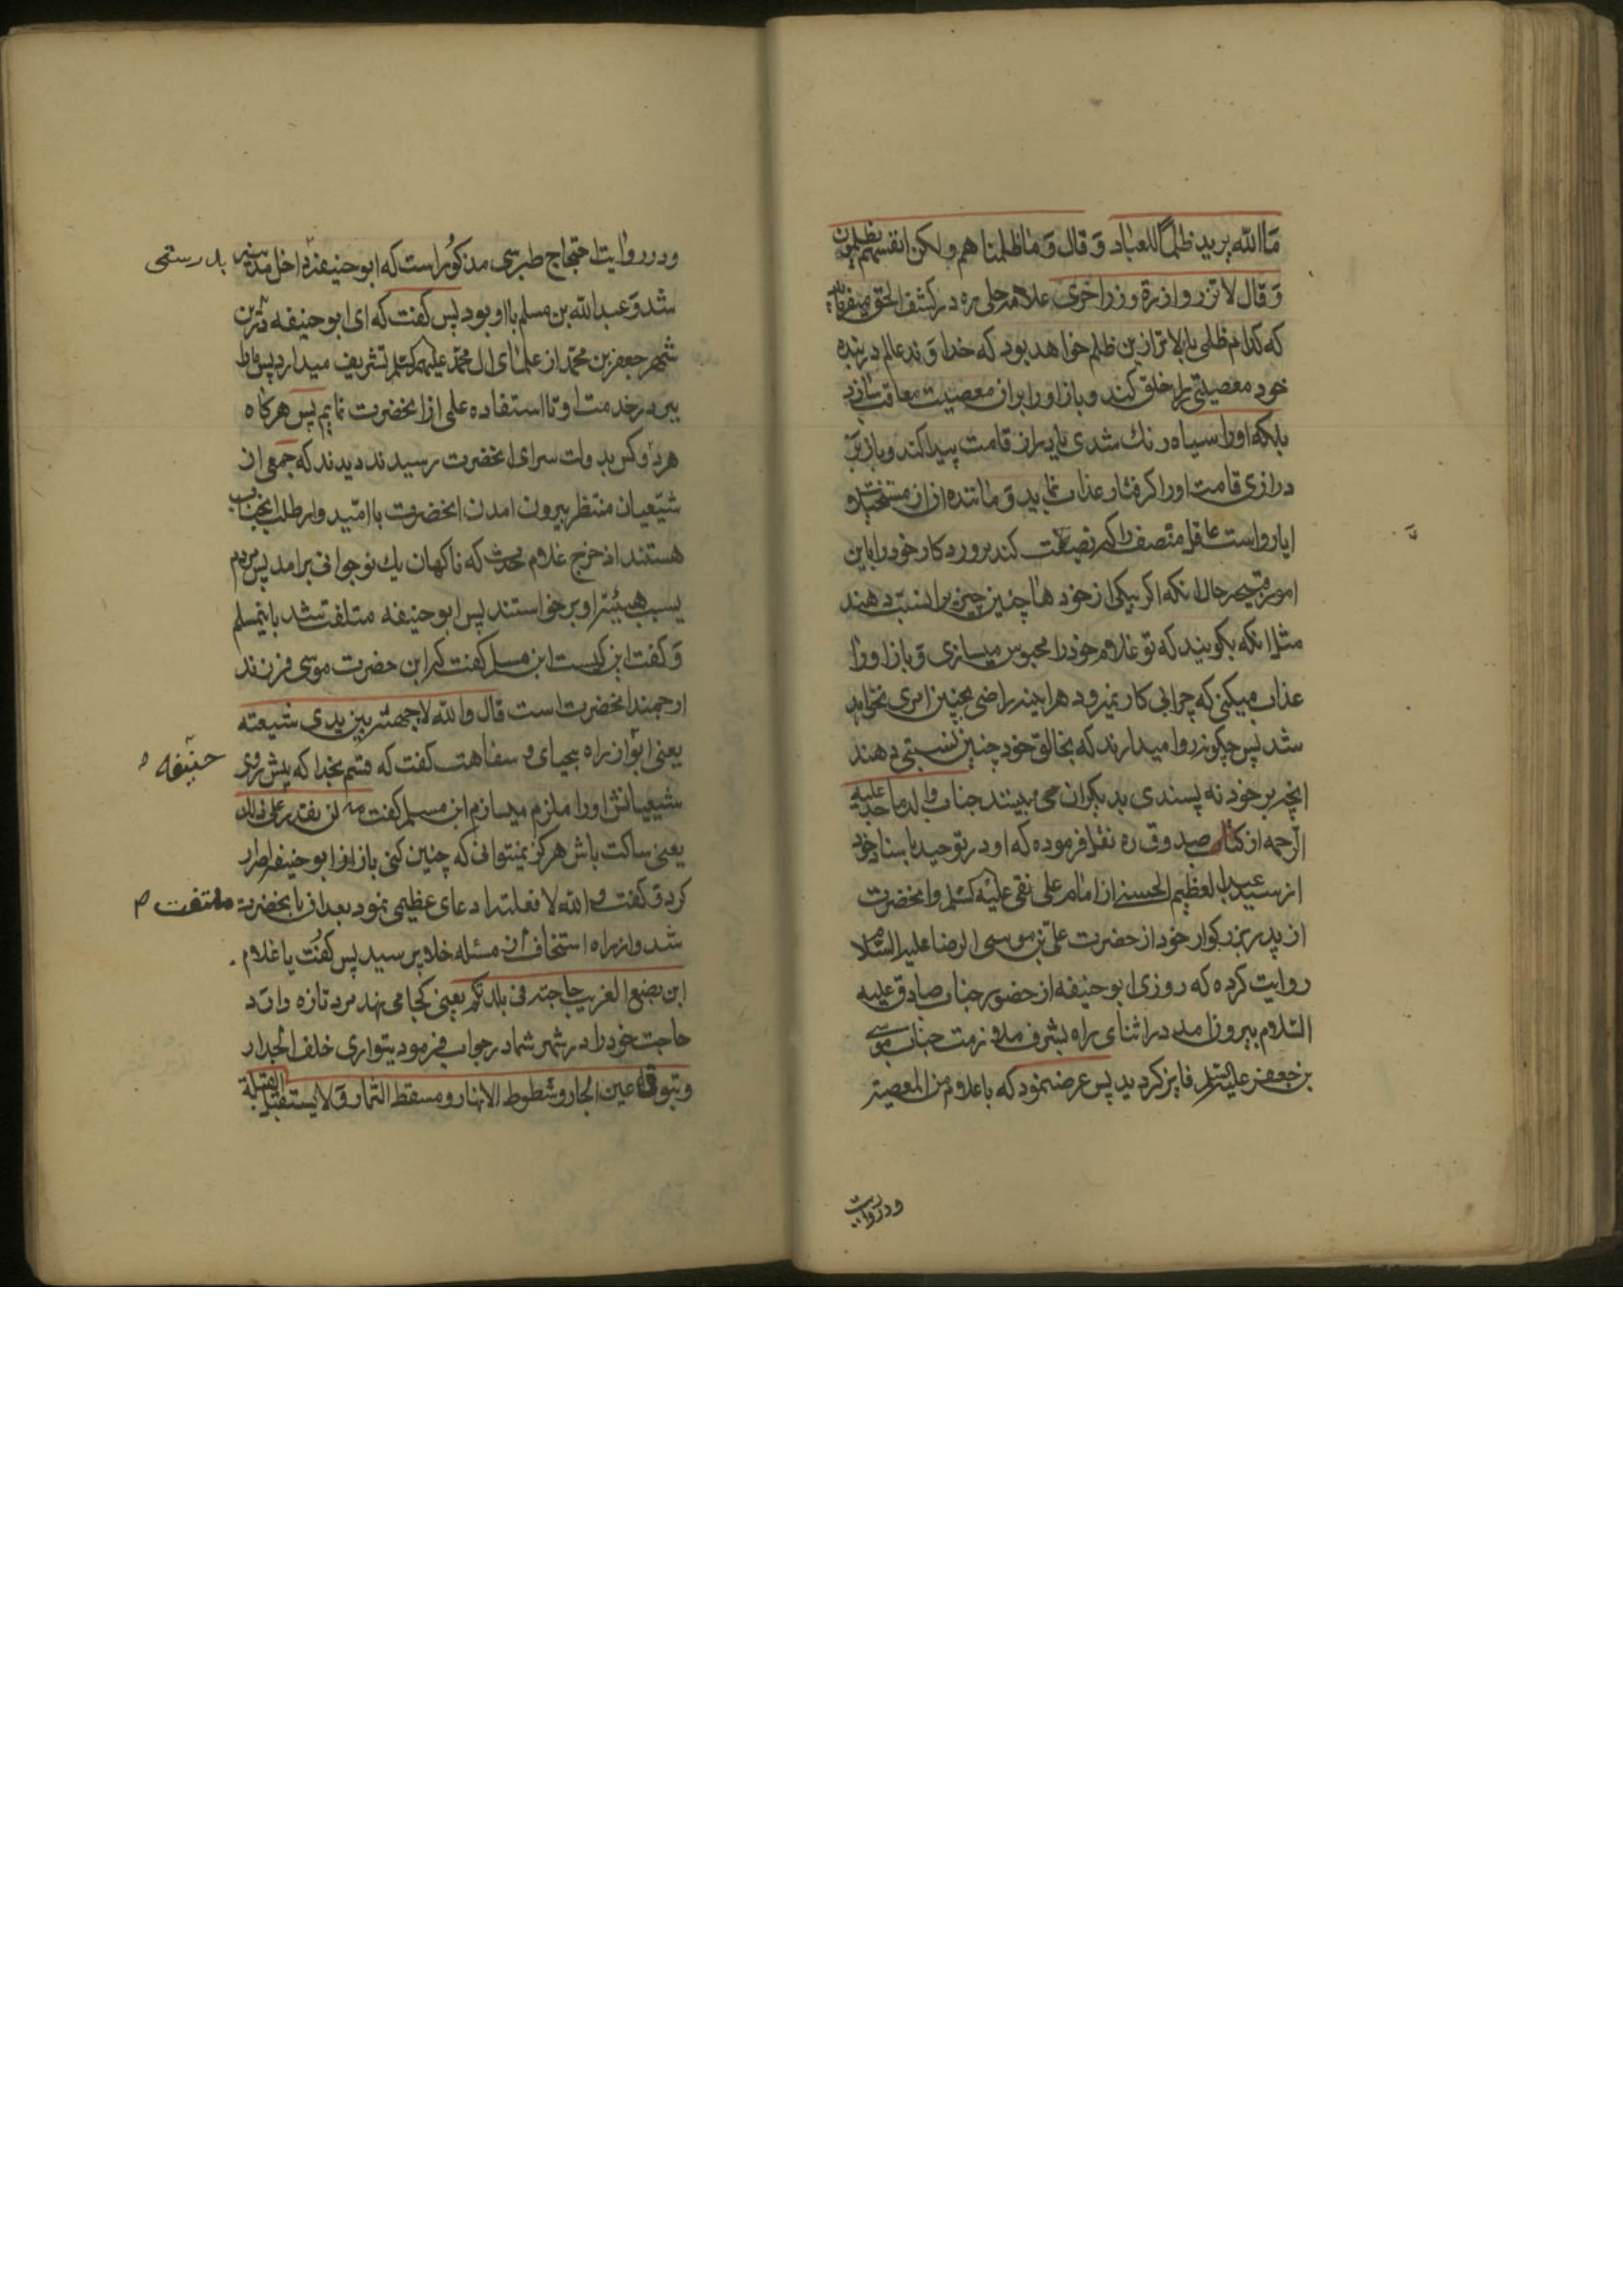 ما الله یرید ظلما للعباد و قال و ما ظلمنا هم ولکن انفسهم یظلمون
و قال لا تزر وازرة وزر اخری علامه حلی ره در کشف الحق میفرماید
که کدام ظلمی بالاتر ازین ظلم خواهد بود که خداوند عالم در بنده
خود معصیتی را خلق کند و باز او را بران معصیت معاقب سازد
بلکه او را سیاه رنك شدی یا بدرازی قامت پیدا کند و باز بر
درازی قامت او را کرفتار عذاب نماید و مانند ان از
ایا رواست عاقل منصف را که نصبت کند پروردکار خود را باین
امور قبیحه حال انکه اکر بیکی از خود ها چنین چیز را نسبت دهند
مثل انکه بکویند که تو غلام خود را محبوس میسازی و باز او را
عذاب میکنی که چرا بی کار نمیرود هر اینه راضی بچنین امری نخواهد
شد پس چکونه روا میدارند که بخالق خود چنین نسبتی دهند
انچه بر خود نه پسندی بدیکران می پسند جناب والد ماجد علیه
الرحمه از کتاب صدوق ره نقل فرموده که او در توحید باسناد خود
از سید عبد العظیم الحسنے از امام علی نقی علیه السلم و انحضرت
از پدر بزرکوار خود از حضرت علی بن موسی الرضا علیه السلام
روایت کرده که روزی ابو حنیفه از حضور جناب صادق علیه
السلام بیرون امد در اثنای راه بشرف ملازمت جناب موسے
بن جعفر علیه السلم فایز کردید پس عرض نمود که یا غلام من المعصیته
ودر روایت
ودر روایت احتجاج طبرسی مذکور است که ابو حنیفه داخل مدینه بدرستی
شد و عبد الله بن مسلم با او بود پس کفت که ای ابو حنیفه درین
شهر جعفر بن محمد از علمای ال محمد علیهم السلم تشریف میدارد پس ما را
ببر در خدمت او تا استفاده علمی از انحضرت نمایم پس هرکاه
هر دو کس بدولت سرای انحضرت رسیدند دیدند که جمعی از
شیعیان منتظر بیرون امدن انحضرت با امید وار طلب انجناب
هستند اذ خرج غلام حدث که ناکهان یك نوجوانی برامد پس مردم
بسبب هیبت او برخواستند پس ابو حنیفه متلفت شد باین مسلم
و کفت این کیست ابن مسلم کفت که این حضرت موسی فرزند
ارجمند انحضرت است قال والله لاجبهته بین یدی شیعته
یعنی ابو از راه بیحیای و سفاهت کفت که قسم بخدا که پیش روی حنیفه
شیعیانش او را ملزم میسازم ابن مسلم کفت مه لن تقدر علی ذلك
یعنی ساکت باش هرکز نمیتوانی که چنین کنی باز ابو حنیفه اصرار
کرد و کفت والله لافعلنه ادعای عظیمی نمود بعد ازان بانحضرت ملتفت
شد و از راه استخفاف ان مسئله خلا پرسید پس کفت یا غلام
این یضع الغریب حاجته فی بلدتکم یعنی کجا می نهد مرد تازه وارد
حاجت خود را در شهر شما در جواب فرمود یتواری خلف الجدار
و یتوقی اعین الجار و شطوط الانهار و مسقط الثمار و لا یستقبل القبلة